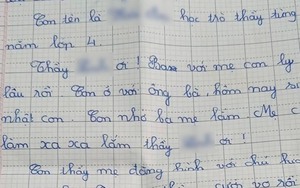 Con tên là học trò thầy từng
năm lớp 4.
Thầy ơi! Ba với mẹ con ly
lâu rồi Con ở với ông bà, hôm nay
nhật con. Con nhớ bà mẹ lắm Mẹ
làm xa xa lắm thầy ơi!
Con thấy mẹ đăng hình với
rồi